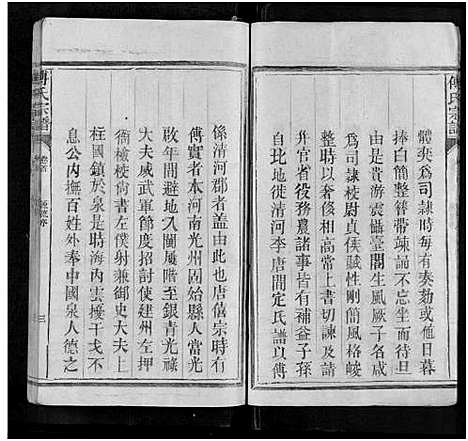 傅氏宗譜
體奕爲司隸時每有奏劾或值日暮
捧白簡整簪帶竦誦不寐坐而待旦
由是貴游震懾臺閣生風厥子名咸
爲司隸校尉貞侯賦性剛簡風格峻
整時以奢侈相高常上書切諫及請
併官省役務農諸事皆有補益子孫
自北地徙清河李唐間定氏以傅
係清河郡者蓋由此也唐僖宗時有
傅實者本河南光州固始縣人當光
啟年間避地入閩厲階至銀青光祿
大夫威武軍節度招討使建州左押
衙檢校尚書左僕射兼御史大夫上
柱國鎮於泉是時海內雲擾干戈不
息公內撫百姓外奉中國泉人德之
傅氏宗譜
卷首
三